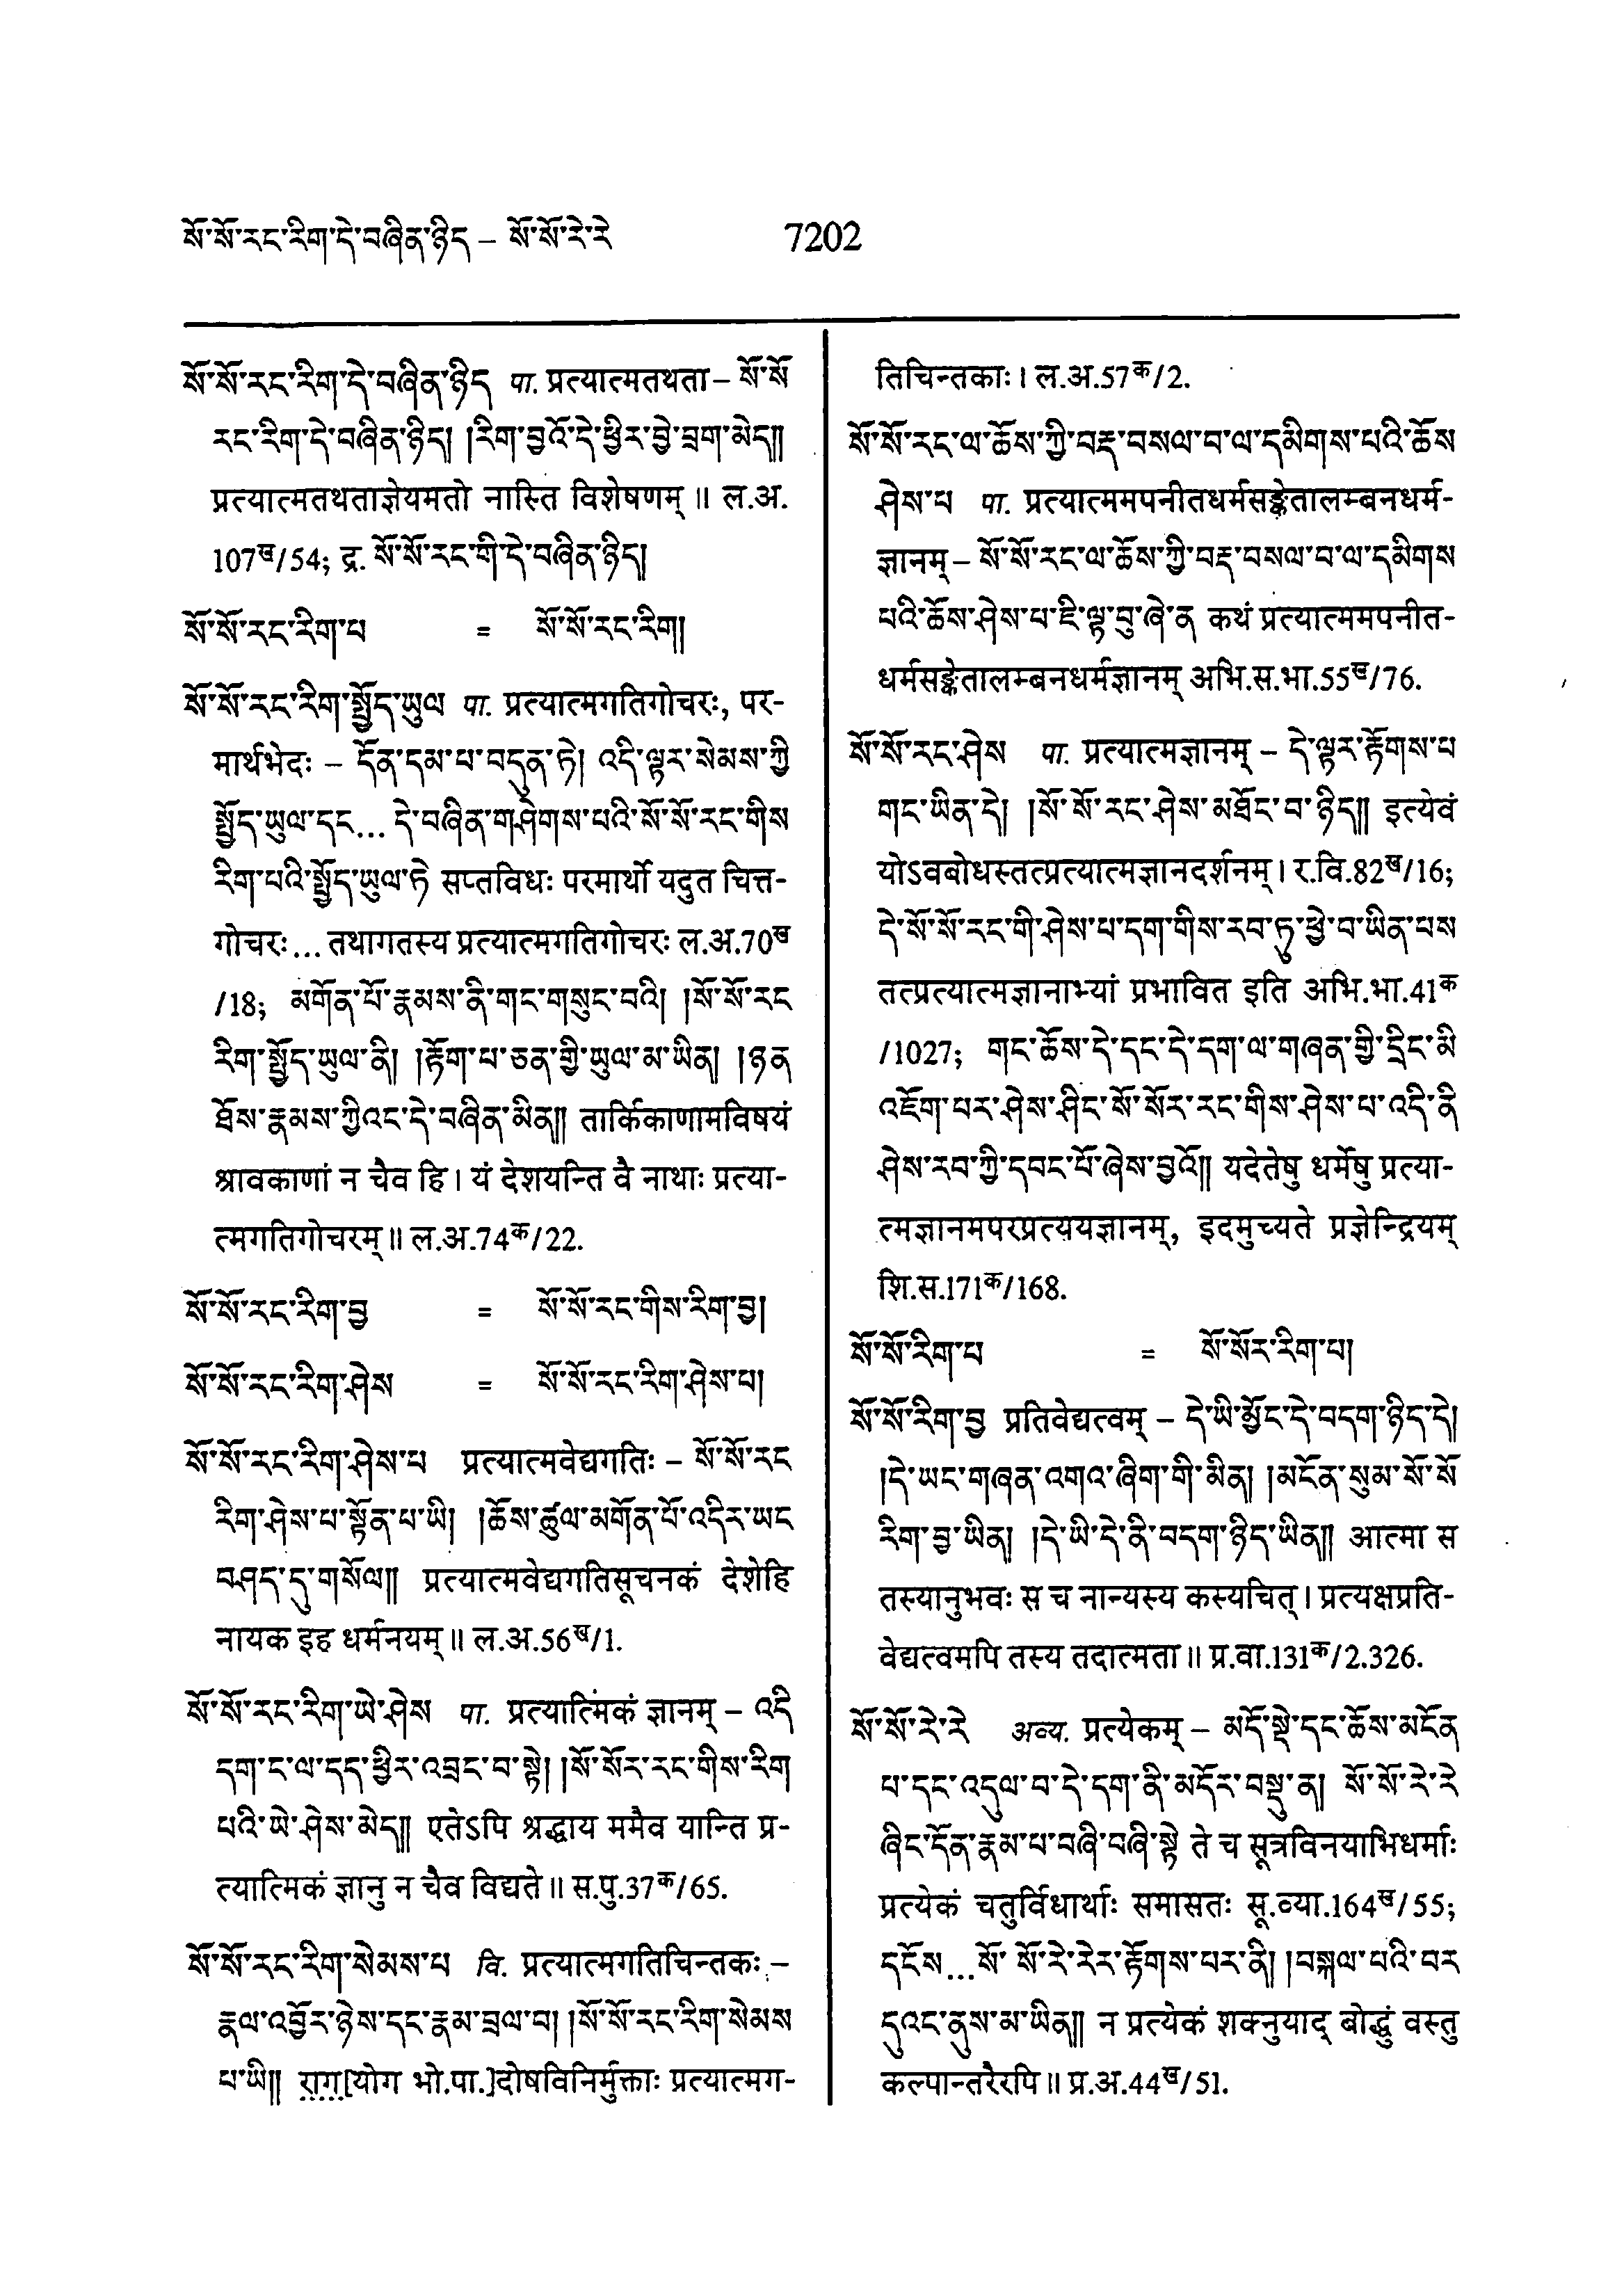 སོ་སོ་རང་རིག་དེ་བཞིན་ཉིད – སོ་སོ་རེ་རེ
7202
སོ་སོ་རང་རིག་དེ་བཞིན་ཉིད पा. प्रत्यात्मतथता – སོ་སོ
རང་རིག་དེ་བཞིན་ཉིད། །རིག་བྱའོ་དེ་ཕྱིར་བྱེ་བྲག་མེད།།
प्रत्यात्मतथताज्ञेयमतो नास्ति विशेषणम् ॥ ल.अ.
107ख/54; द्र. སོ་སོ་རང་གི་དེ་བཞིན་ཉིད།
སོ་སོ་རང་རིག་པ = སོ་སོ་རང་རིག།
སོ་སོ་རང་རིག་སྤྱོད་ཡུལ पा. प्रत्यात्मगतिगोचरः, पर-
मार्थभेदः – དོན་དམ་པ་བདུན་ཏེ། འདི་ལྟར་སེམས་ཀྱི
སྤྱོད་ཡུལ་དང... དེ་བཞིན་གཤེགས་པའི་སོ་སོ་རང་གིས
རིག་པའི་སྤྱོད་ཡུལ་ཏེ सप्तविधः परमार्थो यदुत चित्त-
गोचरः... तथागतस्य प्रत्यात्मगतिगोचरः ल.अ.70ख
/18; མགོན་པོ་རྣམས་ནི་གང་གསུང་བའི། །སོ་སོ་རང
རིག་སྤྱོད་ཡུལ་ནི། །རྟོག་པ་ཅན་གྱི་ཡུལ་མ་ཡིན། །ཉན
ཐོས་རྣམས་ཀྱིའང་དེ་བཞིན་མིན།། तार्किकाणामविषयं
श्रावकाणां न चैव हि । यं देशयन्ति वै नाथाः प्रत्या-
त्मगतिगोचरम् ॥ ल.अ.74क/22.
སོ་སོ་རང་རིག་བྱ = སོ་སོ་རང་གིས་རིག་བྱ།
སོ་སོ་རང་རིག་ཤེས = སོ་སོ་རང་རིག་ཤེས་པ།
སོ་སོ་རང་རིག་ཤེས་པ प्रत्यात्मवेद्यगतिः – སོ་སོ་རང
རིག་ཤེས་པ་སྟོན་པ་ཡི། །ཆོས་ཚུལ་མགོན་པོ་འདིར་ཡང
བཤད་དུ་གསོལ།། प्रत्यात्मवेद्यगतिसूचनकं देशेहि
नायक इह धर्मनयम् ॥ ल.अ.56ख/1.
སོ་སོ་རང་རིག་ཡེ་ཤེས पा. प्रत्यात्मिकं ज्ञानम् – འདི
དག་ང་ལ་དད་ཕྱིར་འབྲང་བ་སྟེ། །སོ་སོར་རང་གིས་རིག
པའི་ཡེ་ཤེས་མེད།། एतेऽपि श्रद्धाय ममैव यान्ति प्र-
त्यात्मिकं ज्ञानु न चैव विद्यते ॥ स.पु.37क/65.
སོ་སོ་རང་རིག་སེམས་པ वि. प्रत्यात्मगतिचिन्तकः –
རྣལ་འབྱོར་ཉེས་དང་རྣམ་བྲལ་བ། །སོ་སོ་རང་རིག་སེམས
པ་ཡི།། राग[योग भो.पा.]दोषविनिर्मुक्ताः प्रत्यात्मग-
तिचिन्तकाः । ल.अ.57क/2.
སོ་སོ་རང་ལ་ཆོས་ཀྱི་བརྡ་བསལ་བ་ལ་དམིགས་པའི་ཆོས
ཤེས་པ पा. प्रत्यात्ममपनीतधर्मसङ्केतालम्बनधर्म-
ज्ञानम् – སོ་སོ་རང་ལ་ཆོས་ཀྱི་བརྡ་བསལ་བ་ལ་དམིགས
པའི་ཆོས་ཤེས་པ་ཇི་ལྟ་བུ་ཞེ་ན कथं प्रत्यात्ममपनीत-
धर्मसङ्केतालम्बनधर्मज्ञानम् अभि.स.भा.55ख/76.
སོ་སོ་རང་ཤེས पा. प्रत्यात्मज्ञानम् – དེ་ལྟར་རྟོགས་པ
གང་ཡིན་དེ། །སོ་སོ་རང་ཤེས་མཐོང་བ་ཉིད།། इत्येवं
योऽवबोधस्तत्प्रत्यात्मज्ञानदर्शनम् । र.वि.82ख/16;
དེ་སོ་སོ་རང་གི་ཤེས་པ་དག་གིས་རབ་ཏུ་ཕྱེ་བ་ཡིན་པས
तत्प्रत्यात्मज्ञानाभ्यां प्रभावित इति अभि.भा.41क
/1027; གང་ཆོས་དེ་དང་དེ་དག་ལ་གཞན་གྱི་དྲིང་མི
འཇོག་པར་ཤེས་ཤིང་སོ་སོར་རང་གིས་ཤེས་པ་འདི་ནི
ཤེས་རབ་ཀྱི་དབང་པོ་ཞེས་བྱའོ།། यदेतेषु धर्मेषु प्रत्या-
त्मज्ञानमपरप्रत्ययज्ञानम्, इदमुच्यते प्रज्ञेन्द्रियम्
शि.स.171क/168.
སོ་སོ་རིག་པ = སོ་སོར་རིག་པ།
སོ་སོ་རིག་བྱ प्रतिवेद्यत्वम् – དེ་ཡི་མྱོང་དེ་བདག་ཉིད་དེ།
།དེ་ཡང་གཞན་འགའ་ཞིག་གི་མིན། །མངོན་སུམ་སོ་སོ
རིག་བྱ་ཡིན། །དེ་ཡི་དེ་ནི་བདག་ཉིད་ཡིན།། आत्मा स
तस्यानुभवः स च नान्यस्य कस्यचित् । प्रत्यक्षप्रति-
वेद्यत्वमपि तस्य तदात्मता ॥ प्र.वा.131क/2.326.
སོ་སོ་རེ་རེ अव्य. प्रत्येकम् – མདོ་སྡེ་དང་ཆོས་མངོན
པ་དང་འདུལ་བ་དེ་དག་ནི་མདོར་བསྡུ་ན། སོ་སོ་རེ་རེ
ཞིང་དོན་རྣམ་པ་བཞི་བཞི་སྟེ ते च सूत्रविनयाभिधर्माः
प्रत्येकं चतुर्विधार्थाः समासतः सू.व्या.164ख/55;
དངོས...སོ་ སོ་རེ་རེར་རྟོགས་པར་ནི། །བསྐལ་པའི་བར
དུའང་ནུས་མ་ཡིན།། न प्रत्येकं शक्नुयाद् बोद्धुं वस्तु
कल्पान्तरैरपि ॥ प्र.अ.44ख/51.